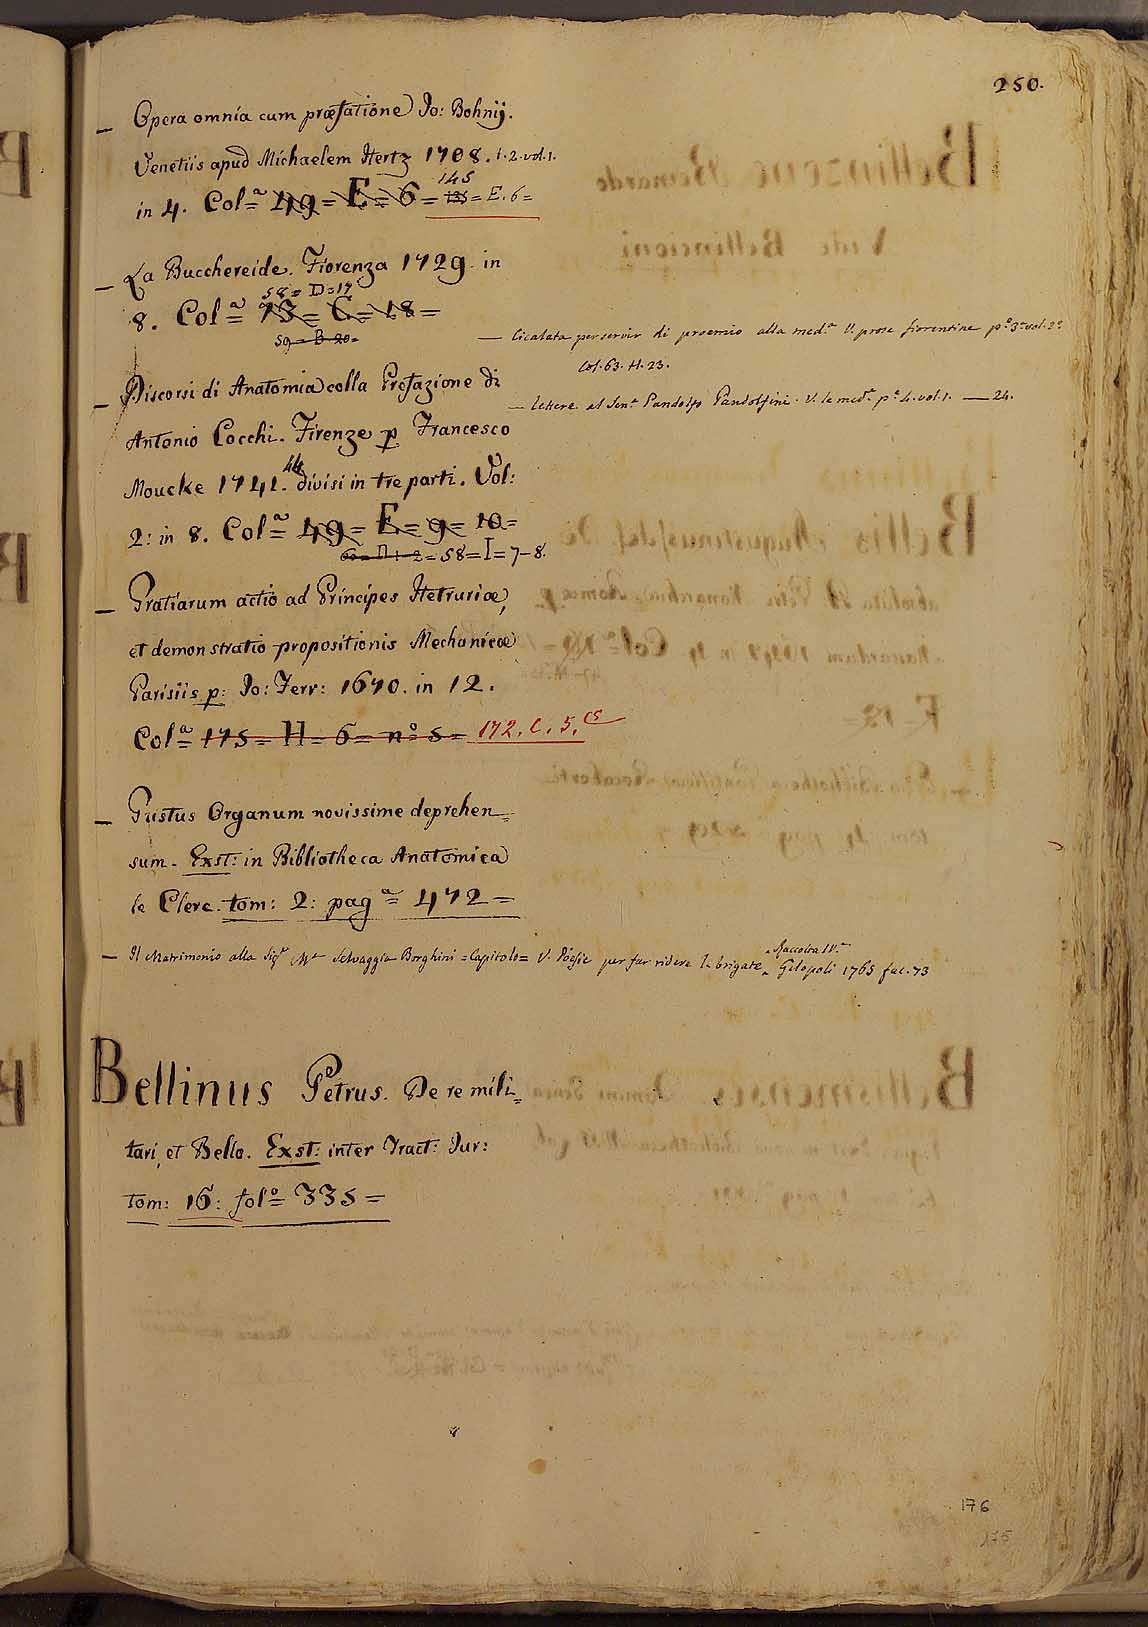 250.
— Opera omnia cum præfatione Jo: Bohnij.
Venetiis apud Michaelem Hertz 1708. t. 2. vol. 1.
in 4. Colª= 49= E= 6= 135= E. 6=
145
— La Bucchereide. Fiorenza 1729. in
58= D=17
8. Colª= 73= C= 18=
59= B 20=
— Cicalata per servir di proemio alla med.ª V. prose fiorentine p.e 3.ª vol. 2.º
Col. 63. H. 23.
— Discorsi di Anatomia colla Prefazione di
— Lettere al Sen.e Pandolfo Pandolfini. V. le med.e p.e 4. vol. 1. — 24.
Antonio Cocchi. Firenze p. Francesco
Moucke 1741. 44 divisi in tre parti. Vol:
2: in 8. Colª= 49= E= 9= 10=
58= I= 7-8.
— Gratiarum actio ad Principes Hetruriæ,
et demonstratio propositionis Mechanicæ
Parisiis p: Jo: Ferr: 1670. in 12.
Colª= 175= H= 6= nº 5= 172. C. 5.
— Gustus Organum novissime deprehen=
sum. Exst: in Bibliotheca Anatomica
le Clerc. tom: 2: pagª= 472=
— Il Matrimonio alla Sig.ra M.a Selvaggia Borghini = Capitolo= V. Poesie per far ridere le brigate Gelopoli 1765 fac. 73
Raccolta
Bellinus Petrus. De re mili=
tari, et Bello. Exst: inter Tract: Jur:
tom: 16: folº= 335=
176
175